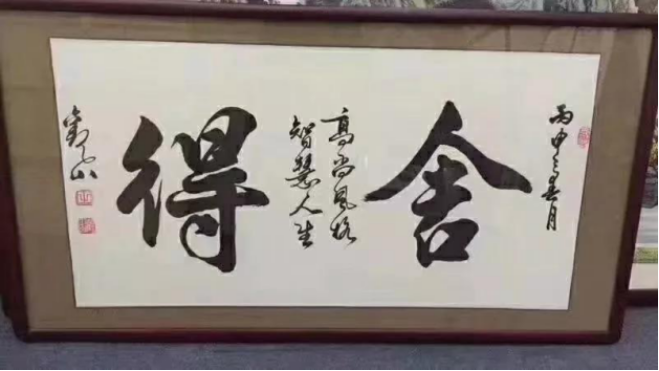 丙申之春月
舍
高尚风格
智慧人生
得